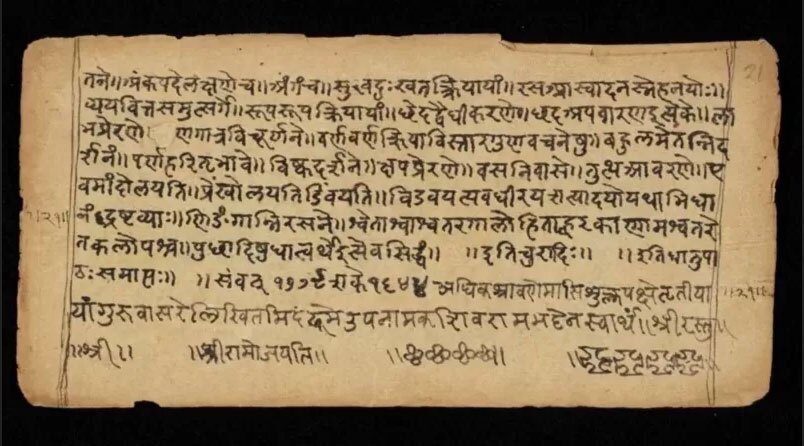 तने॥अंकपदेलक्षणेच॥अंगंच॥सुखदुःखतत्क्रियायां॥रसआस्वादनस्नेहनयोः॥
व्ययवित्तसमुत्सर्गे॥रूपरूपक्रियायां॥छेदद्वैधीकरणे॥छदअपवारणइत्येके॥ला
भप्रेरणे॥ व्रणगात्रविचूर्णने॥वर्णवर्णक्रियाविस्तारगुणवचनेषु॥बहुलमेतन्निद
र्शनं॥पर्णहरितभावे॥विष्कदर्शने॥क्षपप्रेरणे॥वसनिवासे॥तुत्थआवरणे॥ए
वमांदोलयति॥प्रेंखोलयतिडिंबयति॥विडंबयत्यवधीरयत्यादयोयथाभिधा
नंद्रष्टव्याः॥णिङंगान्निरसने॥श्वेताश्वाश्वतरगालोडिताह्वरकाणामश्वतरे
तकलोपश्च॥पुछादिषुधात्वर्थेइत्येवसिद्धं॥ ॥इतिचुरादिः॥ ॥इतिधातुपा
ठःसमाप्तः॥ ॥संवत् १७७९शके१६४४ अधिकश्रावणेमासिशुक्लपक्षेतृतीया
यांगुरुवासरेलिखितमिदं उपनामकशिवरामभट्टेनस्वार्थं॥श्रीरस्तु॥
॥श्री॥ ॥श्रीरामोजयति॥ ॥छछछछ॥